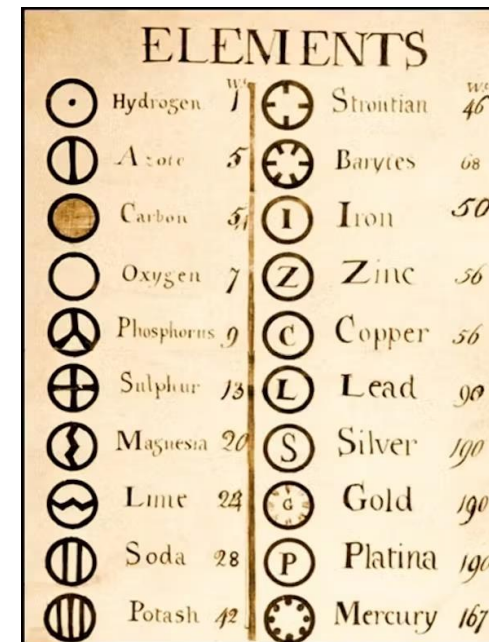 ELEMENTS
Wt
Hydrogen 1
Azote 5
Carbon 5
Oxygen 7
Phosphorus 9
Sulphur 13
Magnesia 20
Lime 24
Soda 28
Potash 42
Wt
Strontian 46
Barytes 68
I Iron 50
Z Zinc 56
C Copper 56
L Lead 90
S Silver 190
G Gold 190
P Platina 190
Mercury 167